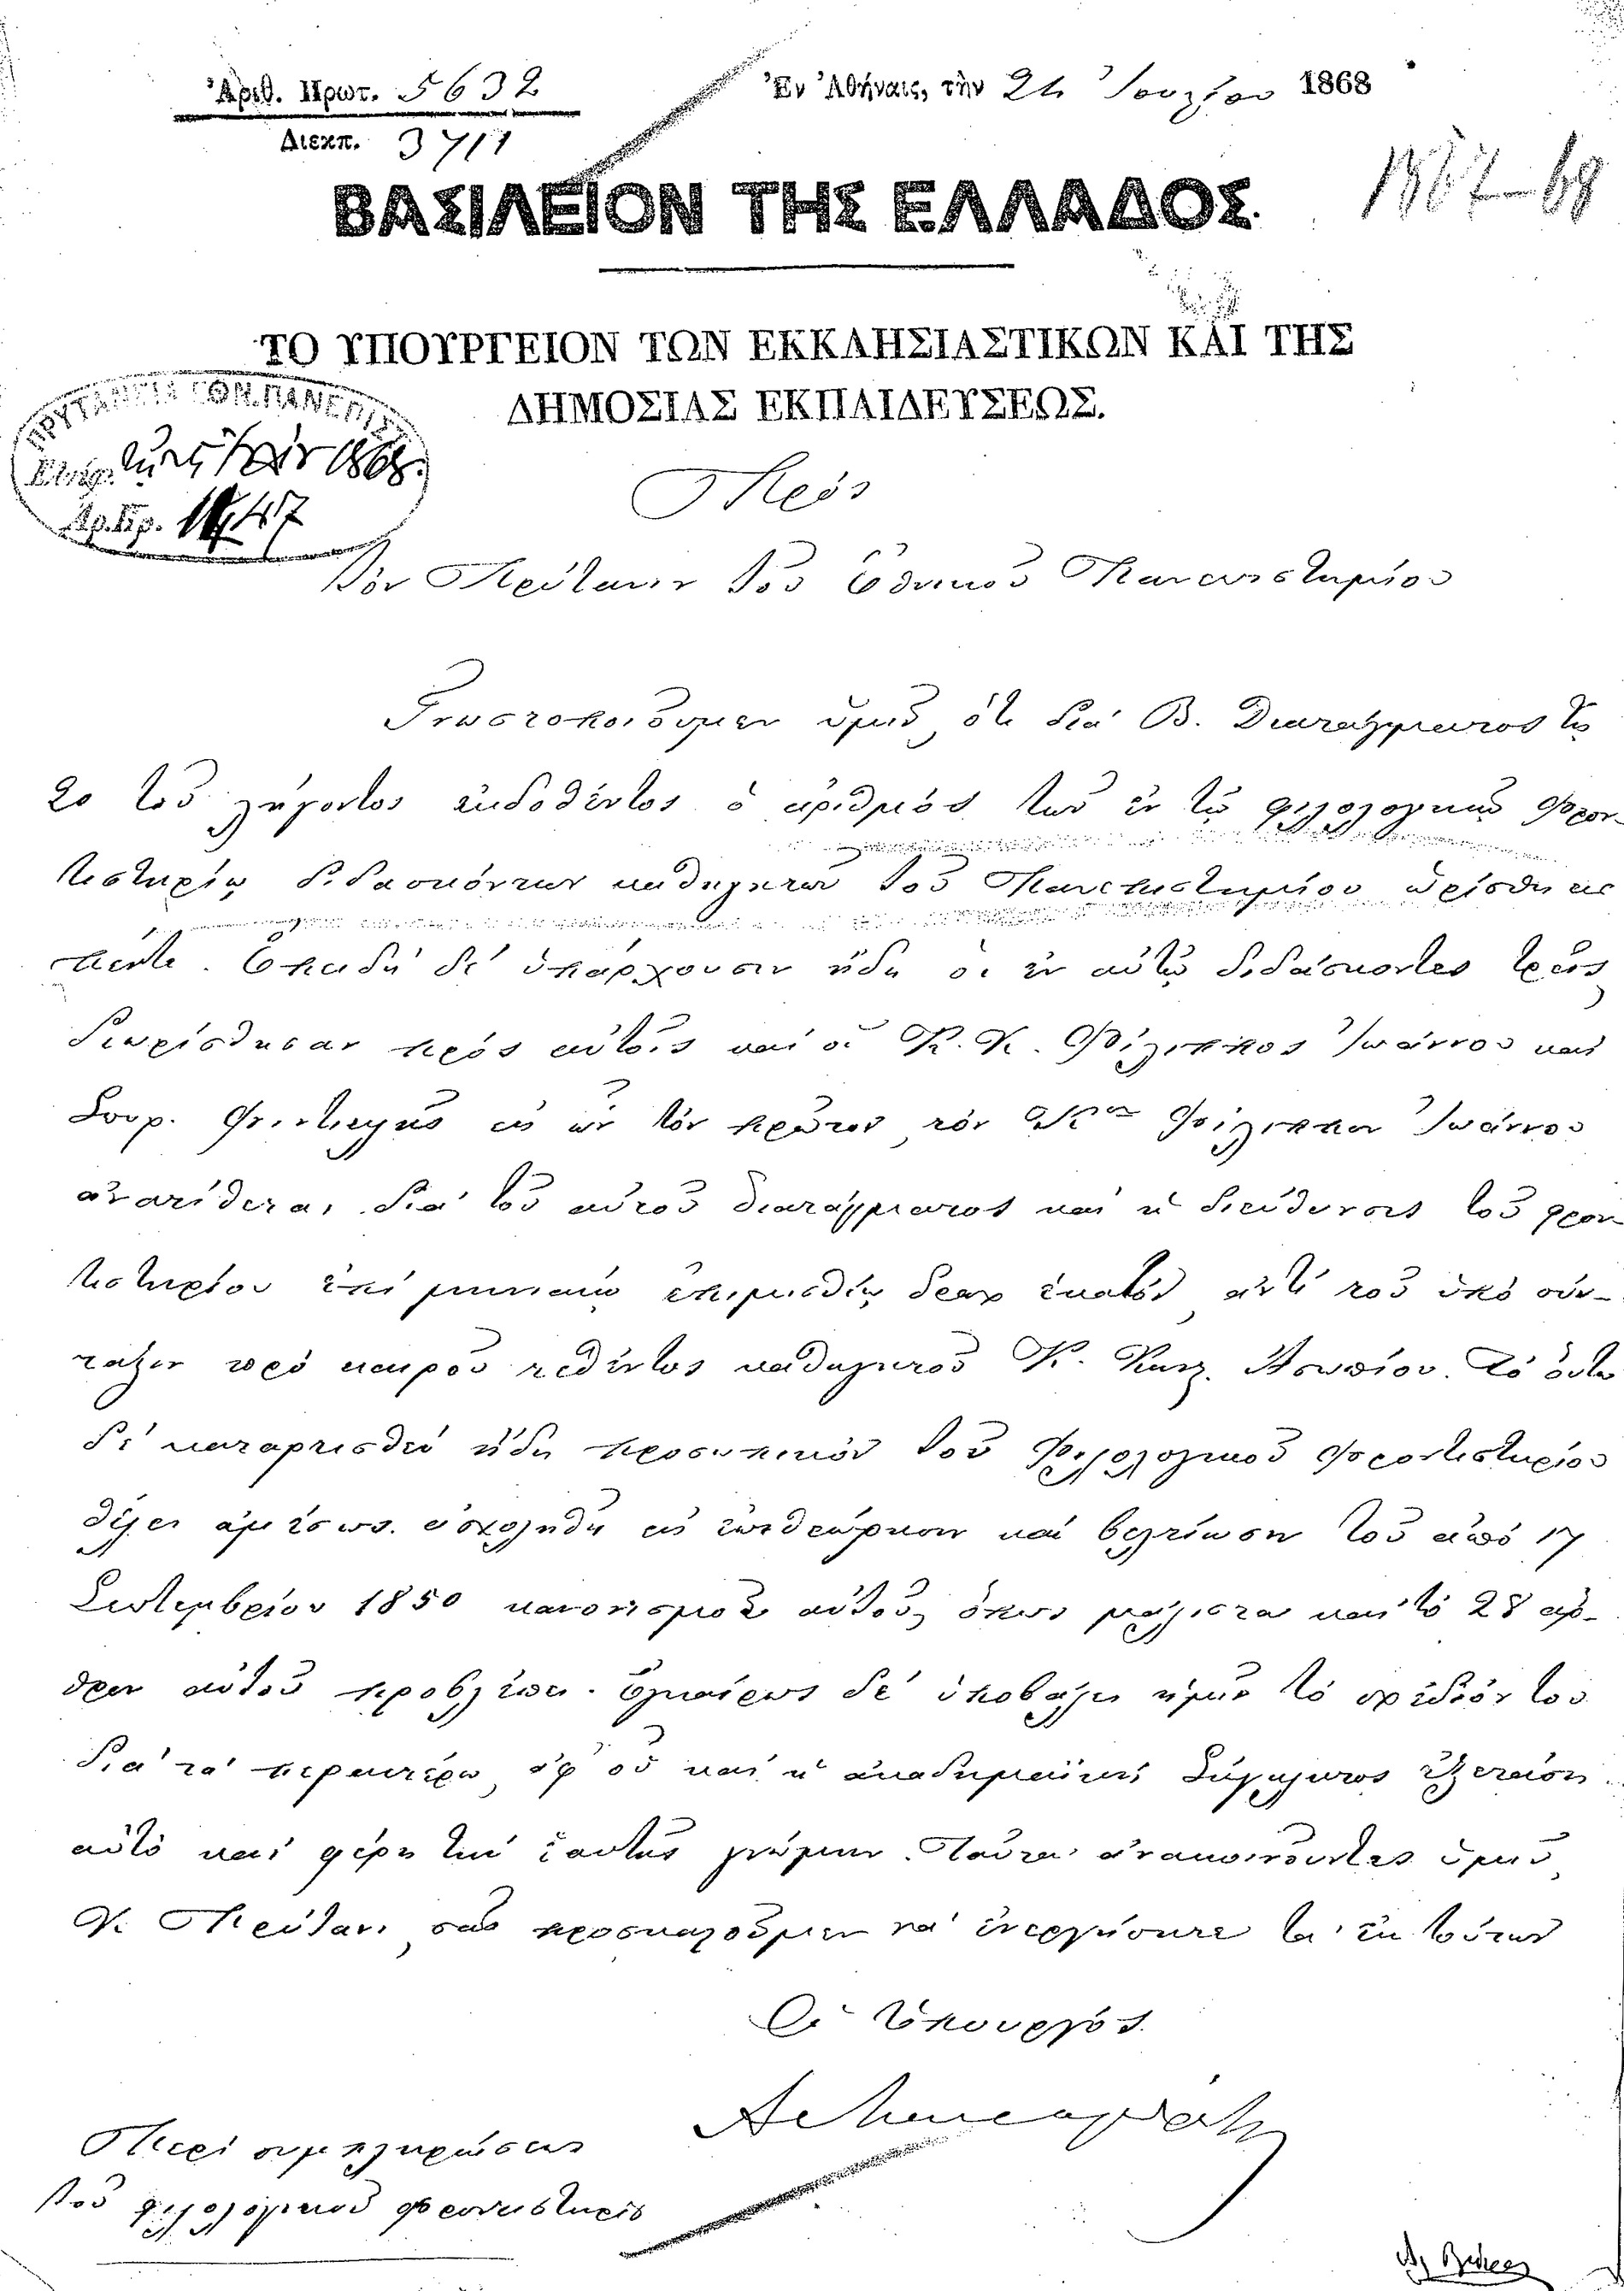 Ἀριθ. Πρωτ. 5632
Διεκπ. 3711
Ἐν Ἀθήναις, τὴν 24 Ἰουλίου 1868
1867-68
ΒΑΣΙΛΕΙΟΝ ΤΗΣ ΕΛΛΑΔΟΣ.
ΤΟ ΥΠΟΥΡΓΕΙΟΝ ΤΩΝ ΕΚΚΛΗΣΙΑΣΤΙΚΩΝ ΚΑΙ ΤΗΣ
ΔΗΜΟΣΙΑΣ ΕΚΠΑΙΔΕΥΣΕΩΣ.
ΠΡΥΤΑΝΕΙΑ ΕΘΝ. ΠΑΝΕΠΙΣΤ
1868
Ἀρ. Πρ.
Πρὸς
τὸν Πρύτανιν τοῦ Ἐθνικοῦ Πανεπιστημίου
Γνωστοποιοῦμεν ὑμῖν, ὅτι διὰ Β. Διατάγματος τῆς
20 τοῦ λήγοντος ἐκδοθέντος ὁ ἀριθμὸς τῶν ἐν τῷ φιλολογικῷ Φρον-
τιστηρίῳ διδασκόντων καθηγητῶν τοῦ Πανεπιστημίου ὡρίσθη εἰς
πέντε. Ἐπειδὴ δὲ ὑπάρχουσιν ἤδη οἱ ἐν αὐτῷ διδάσκοντες τρεῖς,
διωρίσθησαν πρὸς αὐτοῖς καὶ οἱ Κ. Κ. Φίλιππος Ἰωάννου καὶ
Σπυρ. Φιντικλῆς, εἰς ὧν τὸν πρῶτον, τὸν Κον Φίλιππον Ἰωάννου
ἀνατίθεται διὰ τοῦ αὐτοῦ διατάγματος καὶ ἡ διεύθυνσις τοῦ φρον
τιστηρίου ἐπὶ μηνιαίῳ ἐπιμισθίῳ δραχ ἑκατόν, ἀντὶ τοῦ ὑπὸ σύν-
ταξιν πρὸ καιροῦ τεθέντος καθηγητοῦ Κ. Κων. Ἀσωπίου. Τὸ οὕτω
δὲ καταρτισθὲν ἤδη προσωπικὸν τοῦ Φιλολογικοῦ Φροντιστηρίου
θέλει ἀμέσως ἀσχοληθῆ εἰς ἐπιθεώρησιν καὶ βελτίωσιν τοῦ ἀπὸ 17
Σεπτεμβρίου 1850 κανονισμοῦ αὐτοῦ, ὅπως μάλιστα καὶ τὸ 28 ἄρ-
θρον αὐτοῦ προβλέπει. ἐγκαίρως δὲ ὑποβάλει ἡμῖν τὸ σχέδιόν του
διὰ τὰ περαιτέρω, ἀφ' οὗ καὶ ἡ ἀκαδημαϊκὴ Σύγκλητος ἐξετάσῃ
αὐτὸ καὶ φέρῃ τὴν ἑαυτῆς γνώμην. Ταῦτα ἀνακοινοῦντες ὑμῖν,
Κ. Πρύτανι, σᾶς προσκαλοῦμεν νὰ ἐνεργήσητε τὰ ἐκ τούτων
Ὁ Ὑπουργὸς
Περὶ συμπληρώσεως
τοῦ φιλολογικοῦ φροντιστηρίου